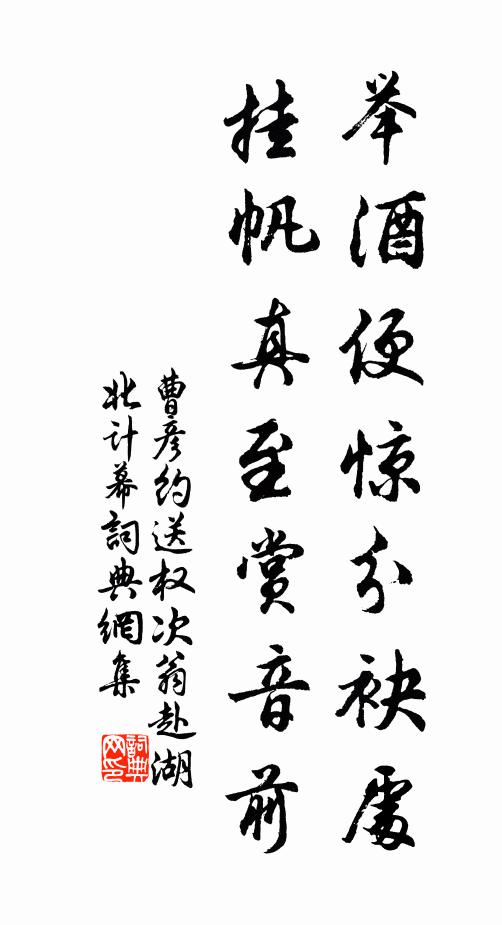 举酒便惊分袂處
挂帆真至赏音前
曹彦约送权次翁赴湖
北计幕詞典網集
詞典網印